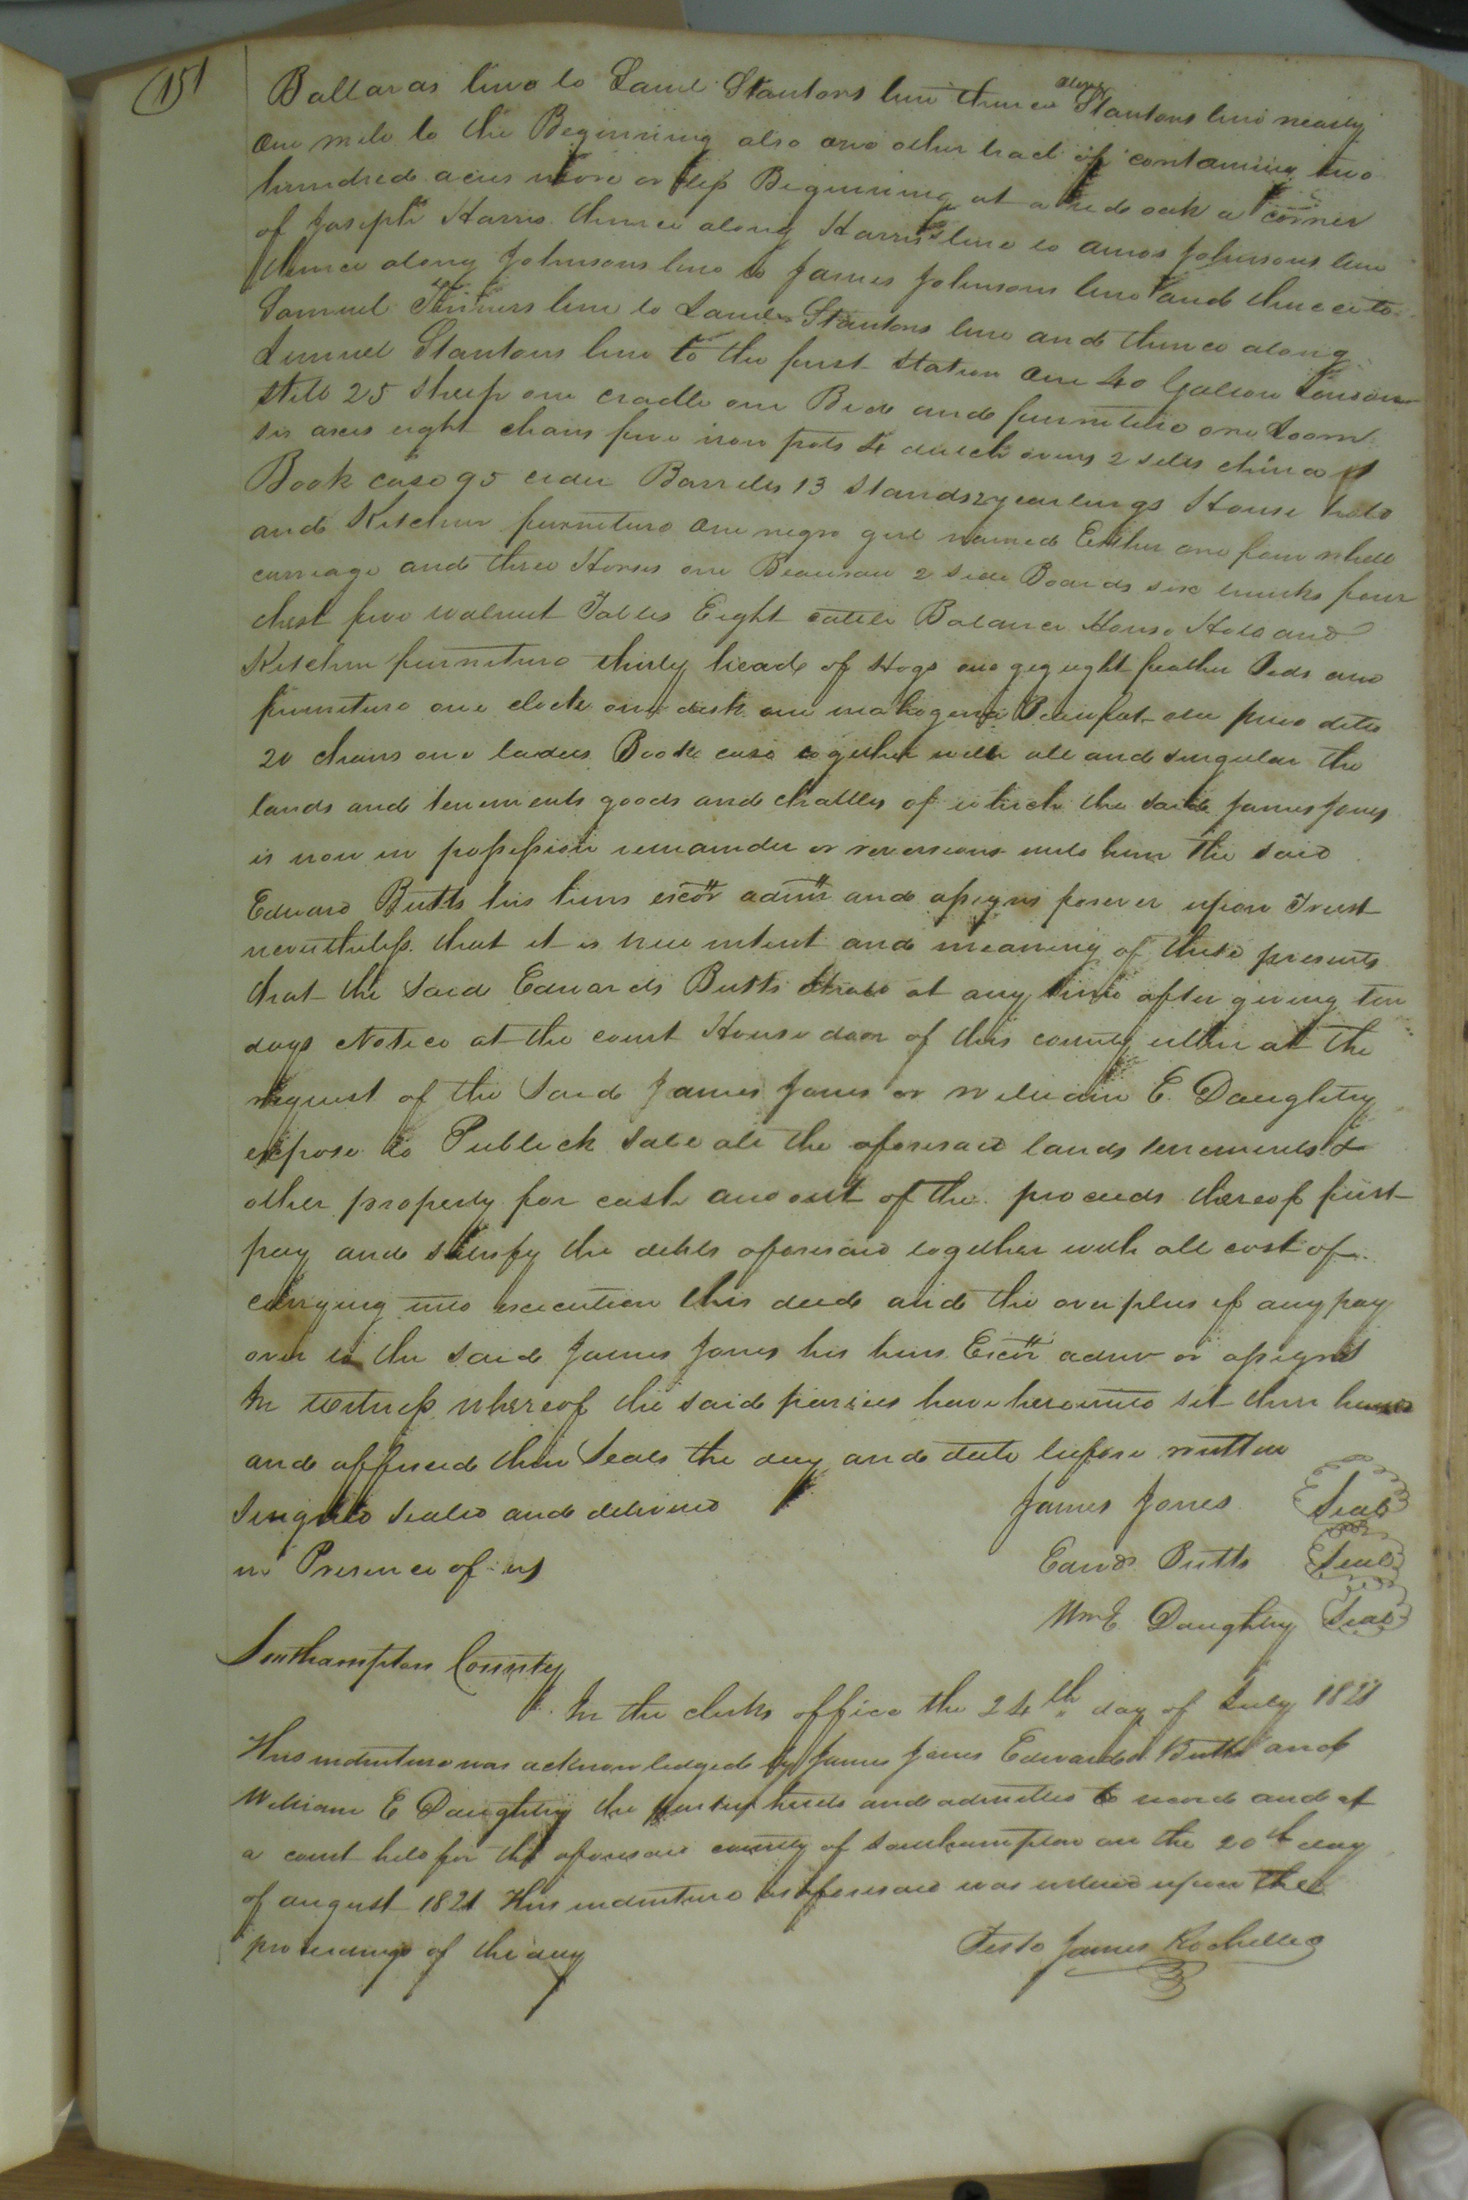 151
Ballaras line to Saml Stantons line thence along Stantons line nearly
one mile to the Beginning also one other tract of containing two
hundred acres more or less Beginning at a red oak a corner
of Joseph Harris thence along Harris's line to amos Johnsons line
thence along Johnsons line to James Johnsons line and thence to
Samuel line to Stantons line and thence along
Lemuel Stantons line to the first Station One 40 Galeon
Still 25 Sheep one cradle one Bed and furniture one Loom
six axes eight chairs five iron pots 4 dutch ovens 2 setts china
Book case 95 cider Barrells 13 Stands 2 yearlings House hold
and Kitchen furniture One negro girl named Esther one four whele
carriage and three Horses one Beaurau 2 side Boards six trunks four
chest five walnut Tables Eight cattle Balance House Hold and
Kitchen furniture thirty head of Hogs one gig eight feather Beds and
furniture one clock one desk one mahogena Beaufat one pine ditto
20 chairs one ladies Book case together with all and singular the
lands and tenements goods and chattles of which the said James Jones
is now in possession remainder or reversions unto him the said
Edward Butts his heirs excor admr and assigns forever upon Trust
nevertheless that it is true intent and meaning of these presents
that the Said Edwards Butts Shall at any time after giving ten
days Notice at the court House door of this county either at the
request of the Said James Jones or William E. Daughtry
expose to Publick Sale all the aforesaid lands tenements &
other property for cash and out of the proceeds thereof first
pay and satisfy the debts aforesaid together with all cost of
carrying into execution this deed and the overplus if any pay
over to the said James Jones his heirs Excor admr or assigns
In witness whereof the said parties have hereunto set their hands
and affixed their Seals the day and date before written
Singned sealed and delivered James Jones Seal
in Presence of us Edwd Butts Seal
Wm E Daughtry Seal
Southampton County
In the clerks office the 24th day of July 1821
This indenture was acknowledged by James Jones Edward Butts and
William E Daughtry the parties hereto and admitted to record and at
a court held for the aforesaid county of Southampton on the 20th day
of august 1821 This indenture as aforesaid was entered upon the
proceedings of the day Teste James Rochelle